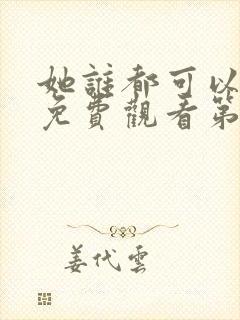 她誰都可以
免費觀看第
姜代雲